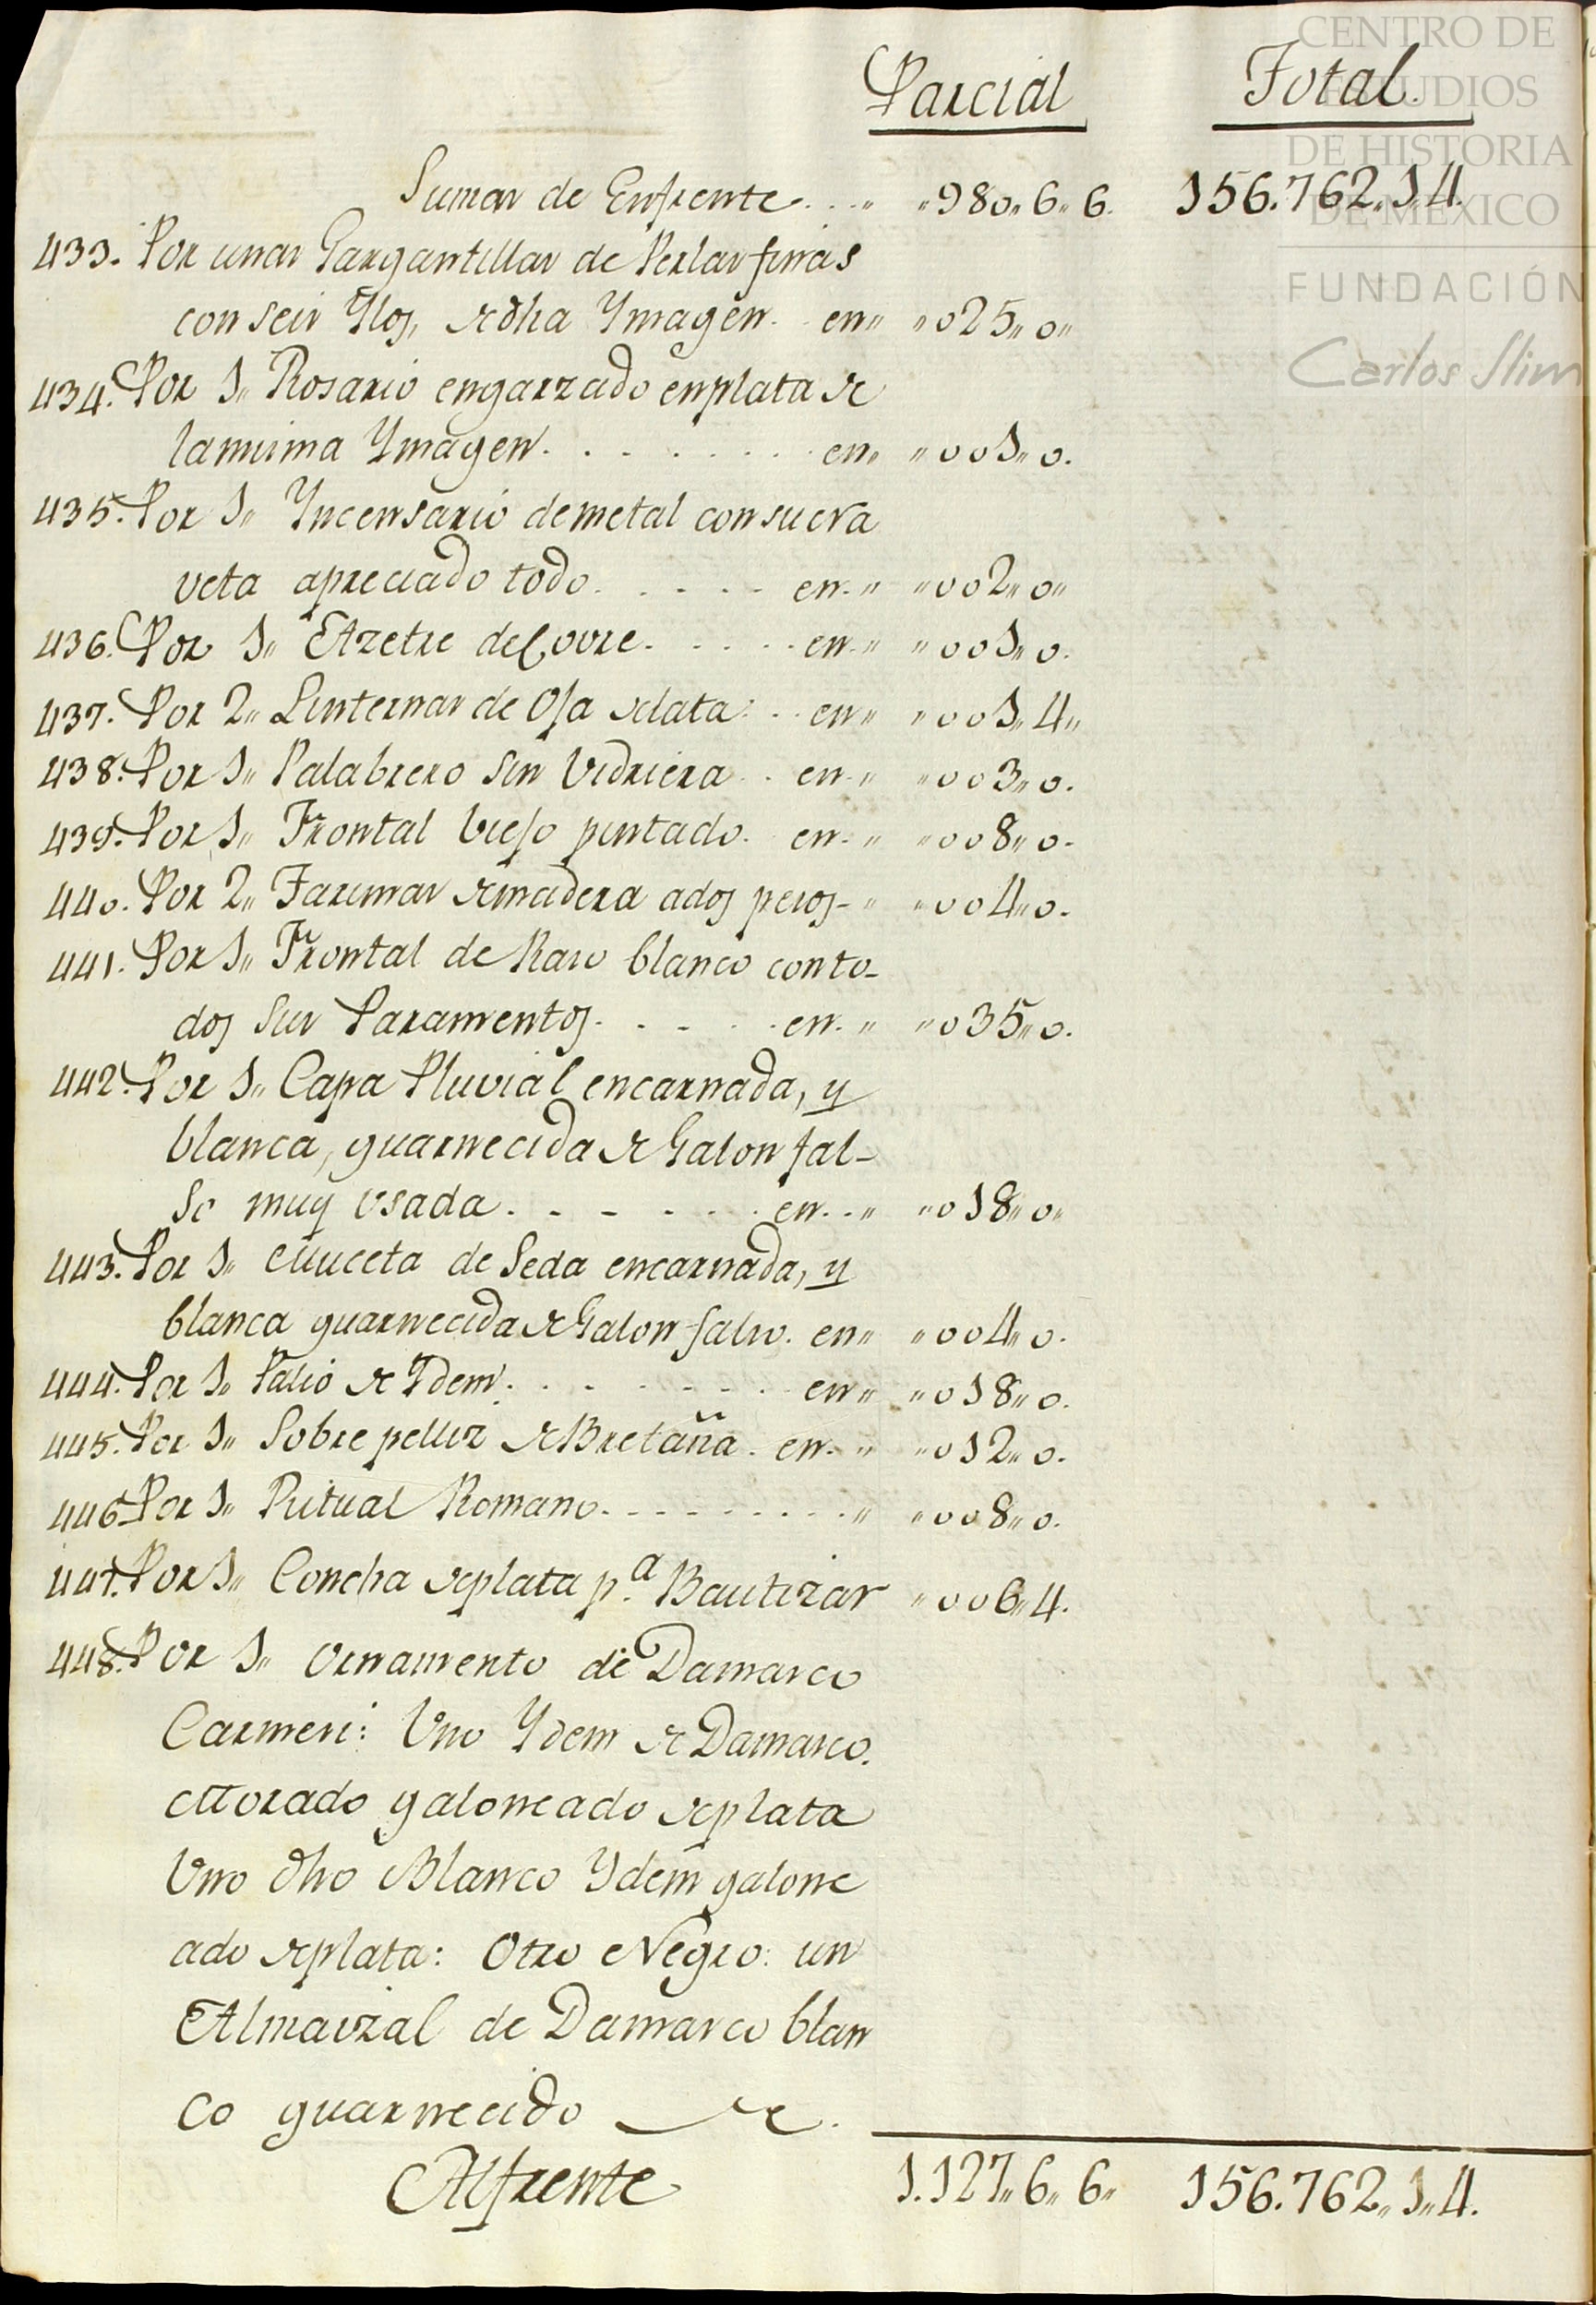 Parcial Total.
Sumas de Enfrente.... " "980"6"6. 156.762"1"4.
433. Por unas Gargantillas de Perlas finas
con seis Ylos, de dha Ymagen. en" "025"0"
434. Por 1" Rosario engarzado en plata de
la misma Ymagen. . . . . . . . en" "001"0.
435. Por 1" Yncensario de metal con su cra
veta apreciado todo. . . . . en." "002"0"
436. Por 1" Azetre de Covre. . . . . en." "001"0.
437. Por 2" Linternas de Oja delata: . . en" "001"4"
438. Por 1" Palabrero sin Vidriera . . en." "003"0.
439. Por 1" Frontal viejo pintado. en." "008"0.
440. Por 2" Tarimas de madera a dos pesos-" "004"0.
441. Por 1" Frontal de Raso blanco con to-
dos sus Paramentos. . . . . en." "035"0.
442. Por 1" Capa Pluvial encarnada, y
blanca, guarnecida de Galon fal-
so muy usada. . . . . . . en.." "018"0"
443. Por 1" Muceta de Seda encarnada, y
blanca guarnecida de Galon falso. en" "004"0.
444. Por 1" Palio de Ydem. . . . . . . . en" "018"0.
445. Por 1" Sobrepelliz de Bretaña. en." "012"0.
446. Por 1" Ritual Romano. . . . . . . . . " "008"0.
447. Por 1" Concha de plata p.ª Bautizar "006"4.
448. Por 1" Ornamento de Damasco
Carmesi: Uno Ydem de Damasco.
Morado galoneado de plata
Uno dho Blanco Ydem galone
ado de plata: Otro Negro: un
Almaizal de Damasco blan
co guarnecido de.
Alfrente 1.127"6"6" 156.762"1"4.
CENTRO DE
ESTUDIOS
DE HISTORIA
DE MÉXICO
FUNDACIÓN
Carlos Slim